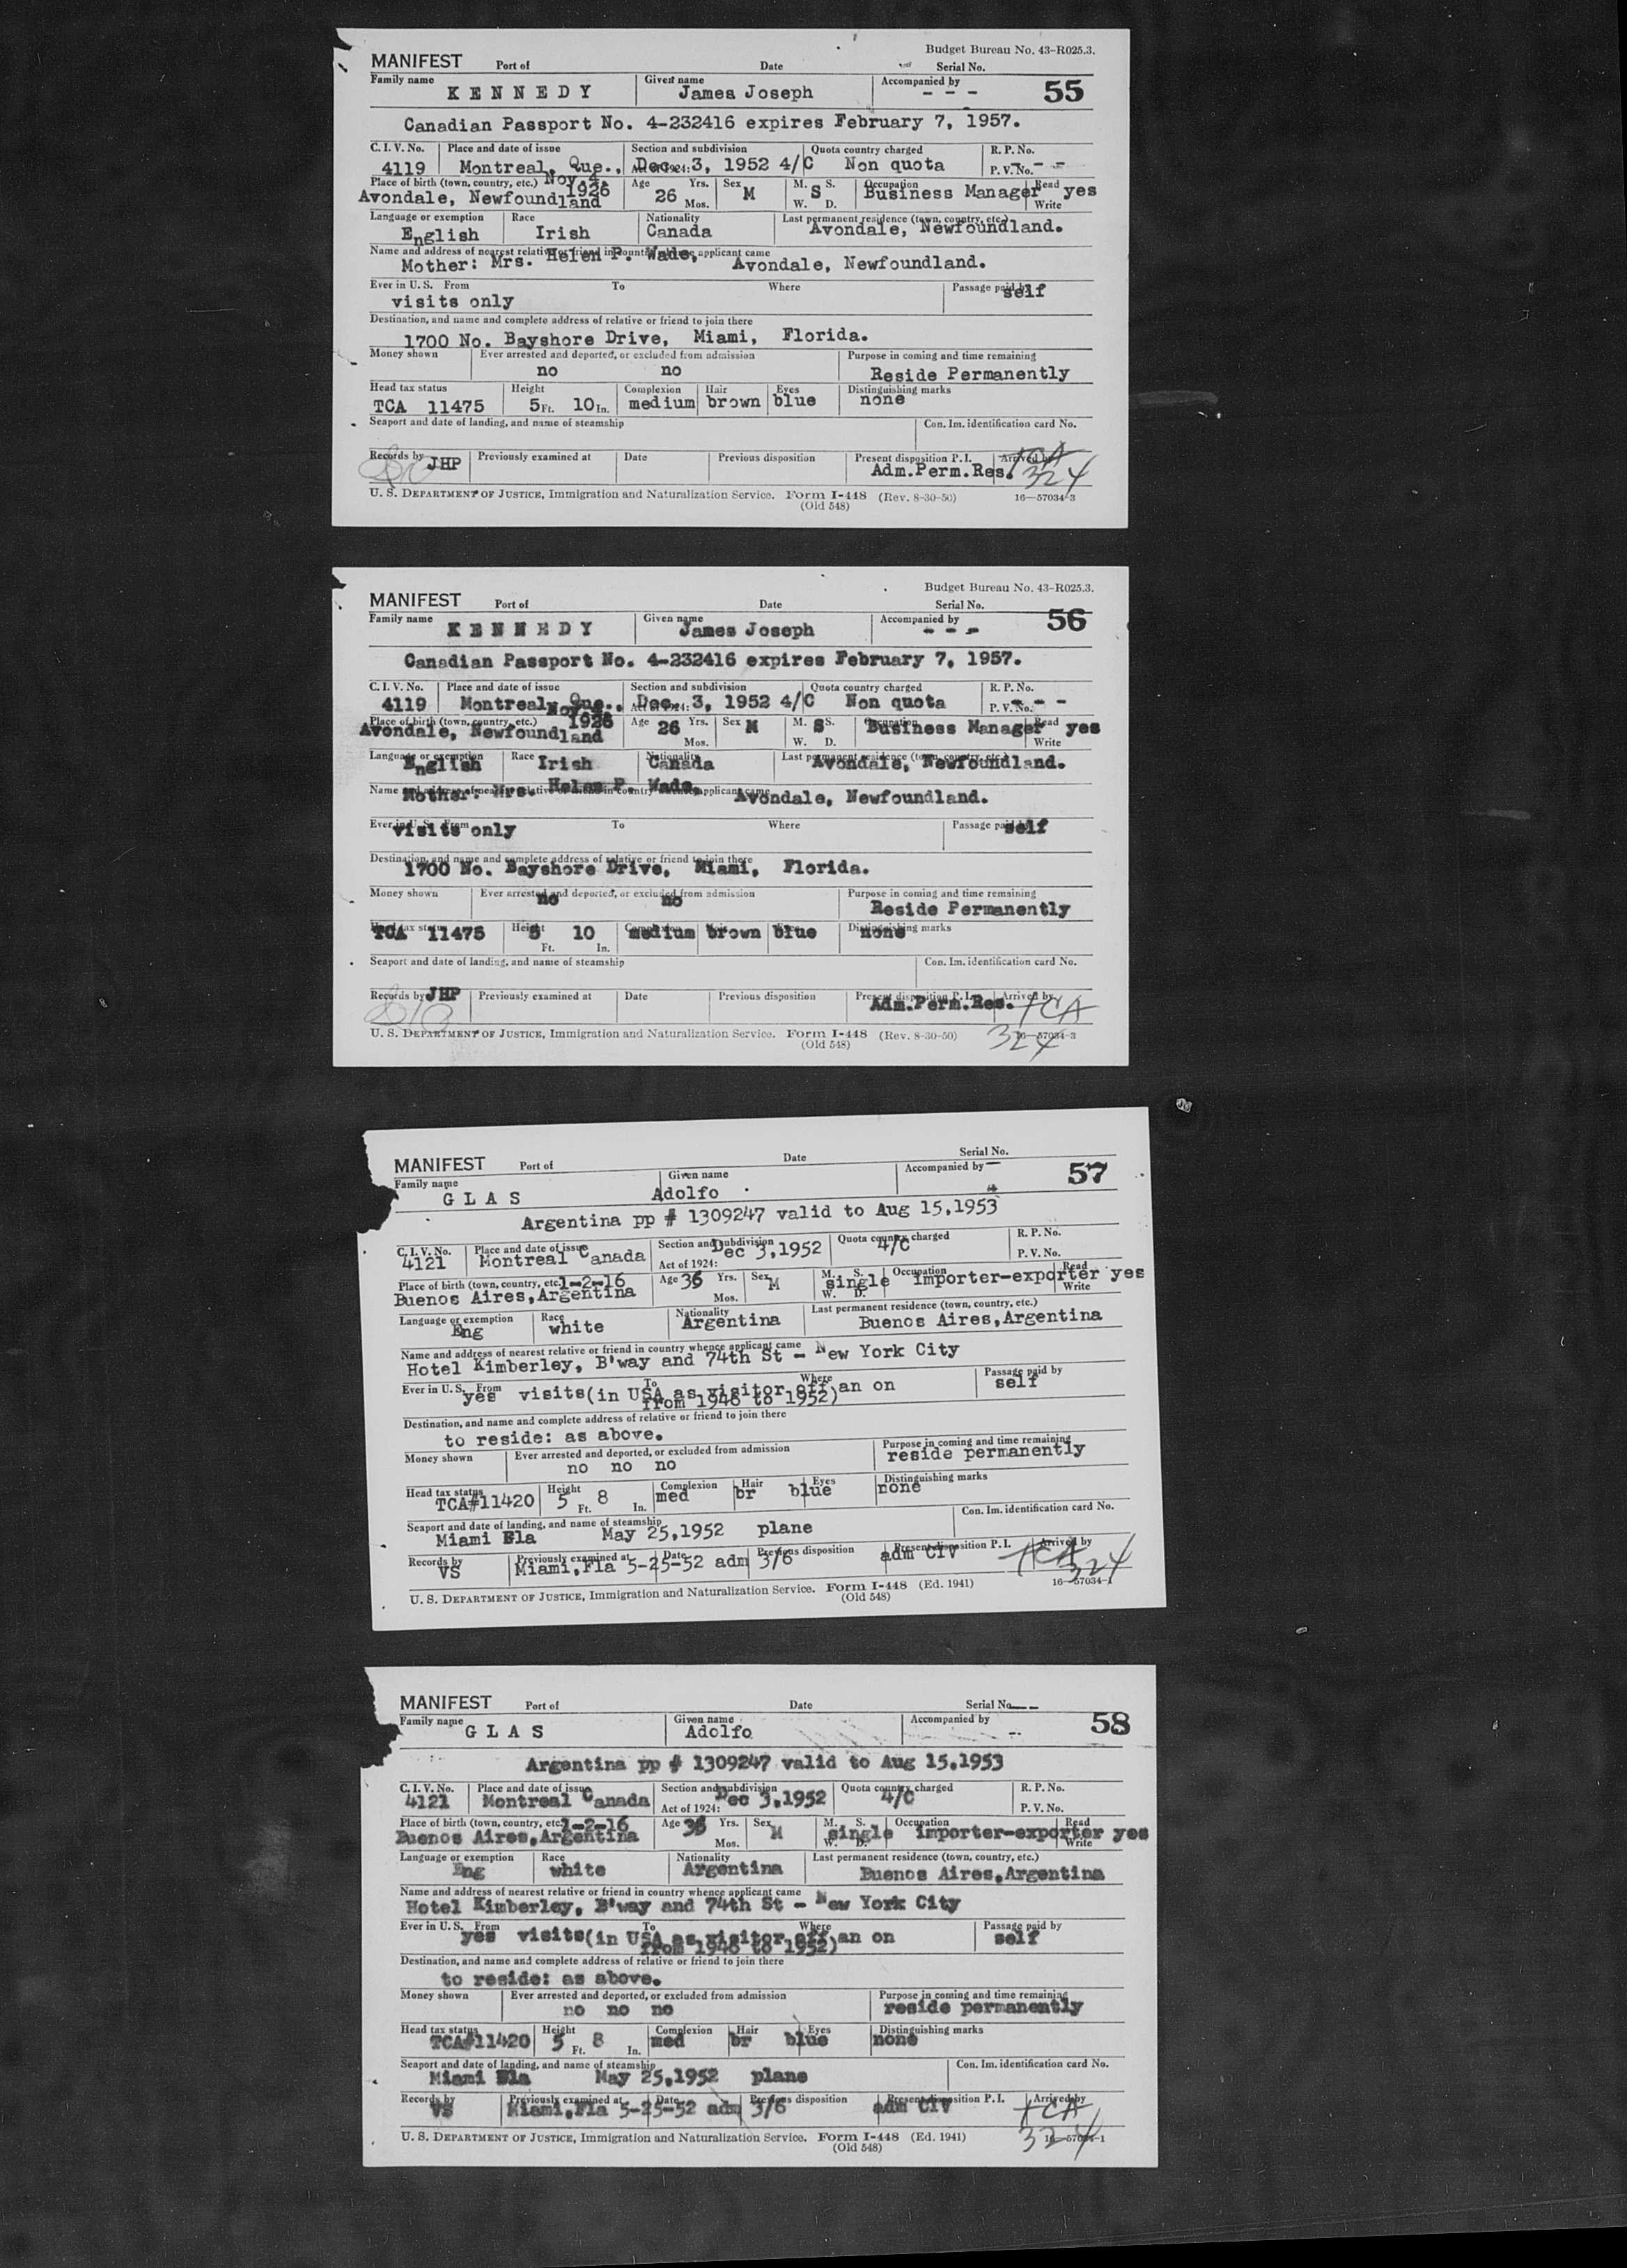 Budget Bureau No. 43-R025.3.
MANIFEST Port of Date Serial No.
Family name Given name Accompanied by 55
K E N N E D Y James Joseph - - -
Canadian Passport No. 4-232416 expires February 7, 1957.
C. I. V. No. Place and date of issue Section and subdivision Quota country charged R. P. No.
4119 Montreal, Que., Dec. 3, 1952 4/C Non quota P. V. No. - - -
Place of birth (town, country, etc.) Nov. 4, 1926 Age Yrs. Sex M. S. Occupation Read yes
Avondale, Newfoundland 26 Mos. M S W. D. Business Manager Write
Language or exemption Race Nationality Last permanent residence (town, country, etc.)
English Irish Canada Avondale, Newfoundland.
Name and address of nearest relative or friend in country whence applicant came
Mother: Mrs. Helen P. Wade, Avondale, Newfoundland.
Ever in U. S. From To Where Passage paid by self
visits only
Destination, and name and complete address of relative or friend to join there
1700 No. Bayshore Drive, Miami, Florida.
Money shown Ever arrested and deported, or excluded from admission Purpose in coming and time remaining
no no Reside Permanently
Head tax status Height Complexion Hair Eyes Distinguishing marks
TCA 11475 5 Ft. 10 In. medium brown blue none
Seaport and date of landing, and name of steamship Con. Im. identification card No.
Records by JHP Previously examined at Date Previous disposition Present disposition P. I. Arrived by TCA
Adm.Perm.Res. 324
U. S. DEPARTMENT OF JUSTICE, Immigration and Naturalization Service. Form I-448 (Rev. 8-30-50) 16—57034-3
(Old 548)
Budget Bureau No. 43-R025.3.
MANIFEST Port of Date Serial No.
Family name Given name Accompanied by 56
K E N N E D Y James Joseph - - -
Canadian Passport No. 4-232416 expires February 7, 1957.
C. I. V. No. Place and date of issue Section and subdivision Quota country charged R. P. No.
4119 Montreal, Que., Dec. 3, 1952 4/C Non quota P. V. No. - - -
Place of birth (town, country, etc.) Nov. 4, 1926 Age 26 Yrs. Sex M M. S S. Occupation Read yes
Avondale, Newfoundland Mos. W. D. Business Manager Write
Language or exemption Race Nationality Last permanent residence (town, country, etc.)
English Irish Canada Avondale, Newfoundland.
Name and address of nearest relative or friend in country whence applicant came
Mother: Mrs. Helen P. Wade, Avondale, Newfoundland.
Ever in U. S. From To Where Passage paid by self
visits only
Destination, and name and complete address of relative or friend to join there
1700 No. Bayshore Drive, Miami, Florida.
Money shown Ever arrested and deported, or excluded from admission Purpose in coming and time remaining
no no Reside Permanently
Head tax status Height Complexion Hair Eyes Distinguishing marks
TCA 11475 5 Ft. 10 In. medium brown blue none
Seaport and date of landing, and name of steamship Con. Im. identification card No.
Records by JHP Previously examined at Date Previous disposition Present disposition P. I. Arrived by
Adm.Perm.Res. TCA
U. S. DEPARTMENT OF JUSTICE, Immigration and Naturalization Service. Form I-448 (Rev. 8-30-50) 324 16—57034-3
(Old 548)
MANIFEST Port of Date Serial No.
Family name Given name Accompanied by 57
G L A S Adolfo
Argentina pp # 1309247 valid to Aug 15,1953
C. I. V. No. Place and date of issue Section and subdivision Quota country charged R. P. No.
4121 Montreal Canada Act of 1924: Dec 3,1952 4/C P. V. No.
Place of birth (town, country, etc.) 1-2-16 Age 36 Yrs. Sex M M. S. Occupation Read
Buenos Aires,Argentina Mos. single W. D. importer-exporter yes Write
Language or exemption Race Nationality Last permanent residence (town, country, etc.)
Eng white Argentina Buenos Aires,Argentina
Name and address of nearest relative or friend in country whence applicant came
Hotel Kimberley, B'way and 74th St - New York City
Ever in U. S. From To Where Passage paid by
yes visits(in USA as visitor off an on self
from 1946 to 1952)
Destination, and name and complete address of relative or friend to join there
to reside: as above.
Money shown Ever arrested and deported, or excluded from admission Purpose in coming and time remaining
no no no reside permanently
Head tax status Height Complexion Hair Eyes Distinguishing marks
TCA#11420 5 Ft. 8 In. med br blue none
Seaport and date of landing, and name of steamship Con. Im. identification card No.
Miami Fla May 25,1952 plane
Records by Previously examined at Date Previous disposition Present disposition P. I. Arrived by
VS Miami,Fla 5-25-52 adm 3/6 adm CIV TCA 324
U. S. DEPARTMENT OF JUSTICE, Immigration and Naturalization Service. Form I-448 (Ed. 1941) 16—57034-1
(Old 548)
MANIFEST Port of Date Serial No.
Family name Given name Accompanied by 58
G L A S Adolfo
Argentina pp # 1309247 valid to Aug 15,1953
C. I. V. No. Place and date of issue Section and subdivision Quota country charged R. P. No.
4121 Montreal Canada Act of 1924: Dec 3,1952 4/C P. V. No.
Place of birth (town, country, etc.) 1-2-16 Age 36 Yrs. Sex M M. S. Occupation Read
Buenos Aires,Argentina Mos. single W. D. importer-exporter yes Write
Language or exemption Race Nationality Last permanent residence (town, country, etc.)
Eng white Argentina Buenos Aires,Argentina
Name and address of nearest relative or friend in country whence applicant came
Hotel Kimberley, B'way and 74th St - New York City
Ever in U. S. From To Where Passage paid by
yes visits(in USA as visitor off an on self
from 1946 to 1952)
Destination, and name and complete address of relative or friend to join there
to reside: as above.
Money shown Ever arrested and deported, or excluded from admission Purpose in coming and time remaining
no no no reside permanently
Head tax status Height Complexion Hair Eyes Distinguishing marks
TCA#11420 5 Ft. 8 In. med br blue none
Seaport and date of landing, and name of steamship Con. Im. identification card No.
Miami Fla May 25,1952 plane
Records by Previously examined at Date Previous disposition Present disposition P. I. Arrived by
VS Miami,Fla 5-25-52 adm 3/6 adm CIV TCA
U. S. DEPARTMENT OF JUSTICE, Immigration and Naturalization Service. Form I-448 (Ed. 1941) 324 16—57034-1
(Old 548)